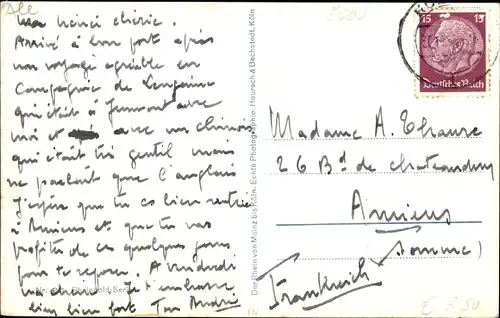 Ma chérie.
Arrivé à bon port après
un voyage agréable en
compagnie de
qui était à Jeumont avec
moi et avec un chinois
qui était très gentil mais
ne parlait que l'anglais
J'espère que tu es bien rentrée
à Amiens et que tu vas
profiter de ces quelques jours
pour te reposer. A vendredi
ma chérie. Je t'embrasse
bien bien fort Ton André
Der Rhein von Mainz bis Köln. Echte Photographie. Hoursch & Bechstedt, Köln
15 15
Deutsches Reich
Madame A. Thause
26 Bd de Chateaudun
Amiens
(Somme)
Frankreich